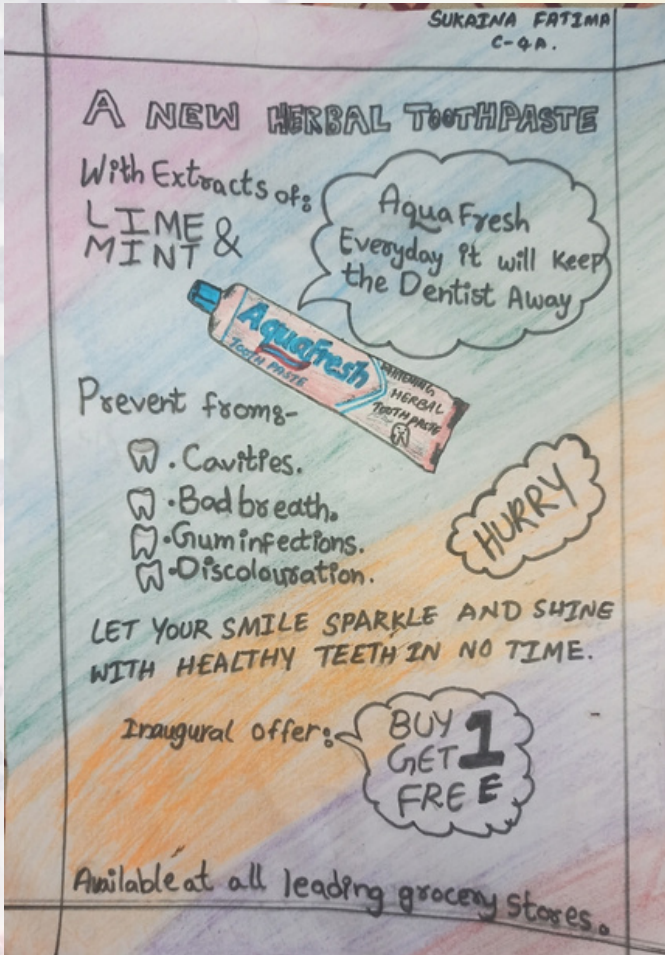 SUKAINA FATIMA
C-4A.
A NEW HERBAL TOOTHPASTE
With Extracts of:
LIME &
MINT
Aqua Fresh
Everyday it will keep
the Dentist Away
Aquafresh
TOOTH PASTE
WHITENING
HERBAL
TOOTH PASTE
Prevent from:-
. Cavities.
. Bad breath.
. Gum infections.
. Discolouration.
HURRY
LET YOUR SMILE SPARKLE AND SHINE
WITH HEALTHY TEETH IN NO TIME.
Inaugural offer:
BUY 1
GET
FREE
Available at all leading grocery stores.